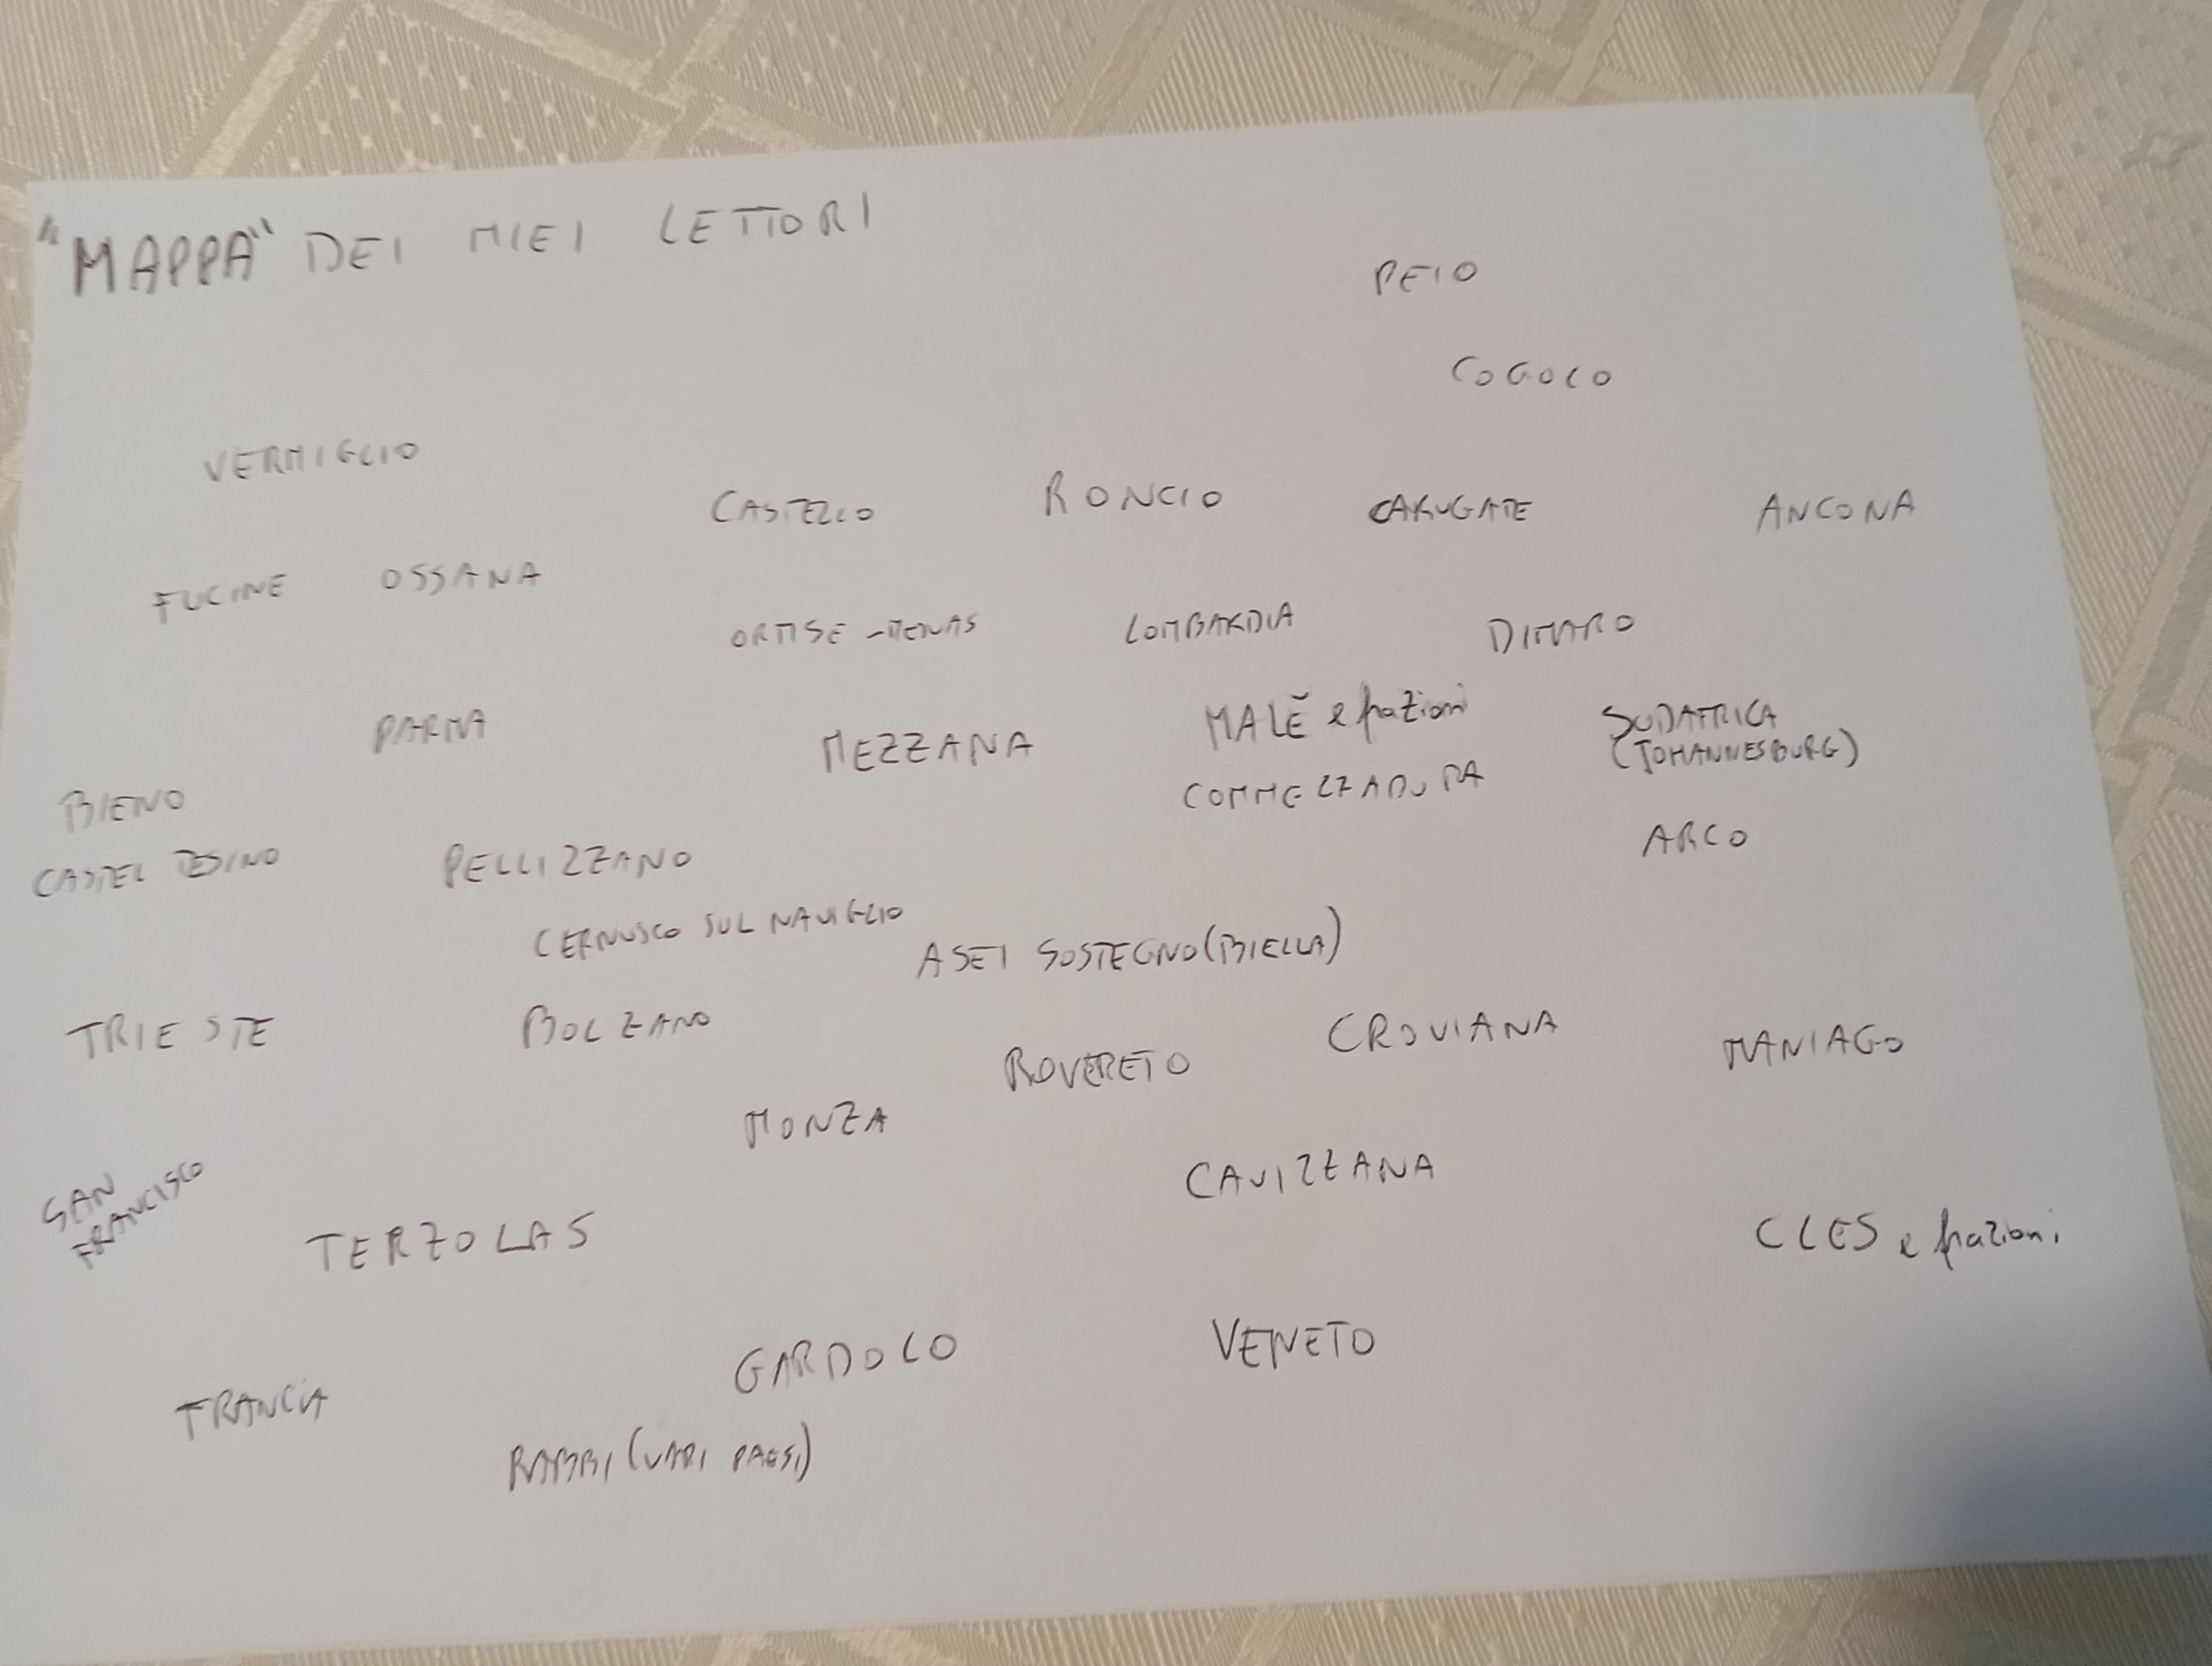 "MAPPA" DEI MIEI LETTORI
PEIO
COGOLO
VERMIGLIO
CASTELLO
RONCIO
CARUGATE
ANCONA
FUCINE
OSSANA
ORTISE-MENAS
LOMBARDIA
DIMARO
PARMA
MEZZANA
MALÈ e frazioni
SUDAFRICA
(JOHANNESBURG)
COMMEZZADURA
BIENO
ARCO
CASTEL TESINO
PELLIZZANO
CERNUSCO SUL NAVIGLIO
ASEI SOSTEGNO (BIELLA)
TRIESTE
BOLZANO
ROVERETO
CROVIANA
MANIAGO
MONZA
CAVIZZANA
SAN
FRANCISCO
TERZOLAS
CLES e frazioni
GARDOLO
VENETO
FRANCIA
RABBI (VARI PAESI)